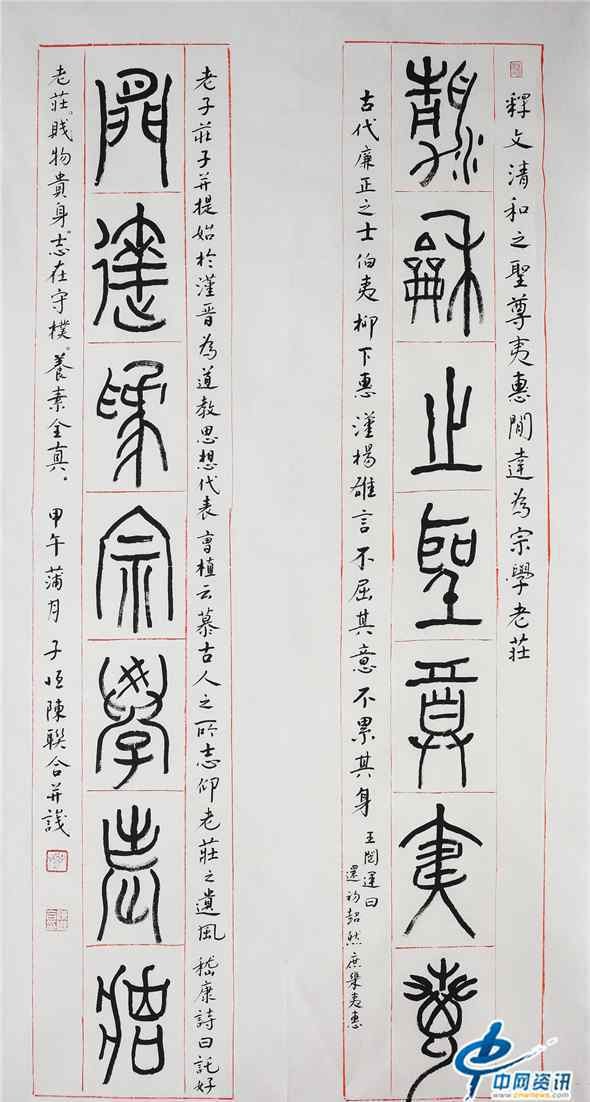 釋文清和之聖尊夷惠閒達為宗學老莊
清龢之聖尊夷惠
古代廉正之士伯夷柳下惠漢楊雄言不屈其意不累其身
王闓運曰
還初超然庶幾夷惠
老子莊子并提始於漢晉為道教思想代表曹植云慕古人之所志仰老莊之遺風嵇康詩曰託好
閒達為宗學老莊
老莊。賤物貴身。志在守樸。養素全真。甲午蒲月子恆陳聯合并識
中网资讯
www.cnwnews.com